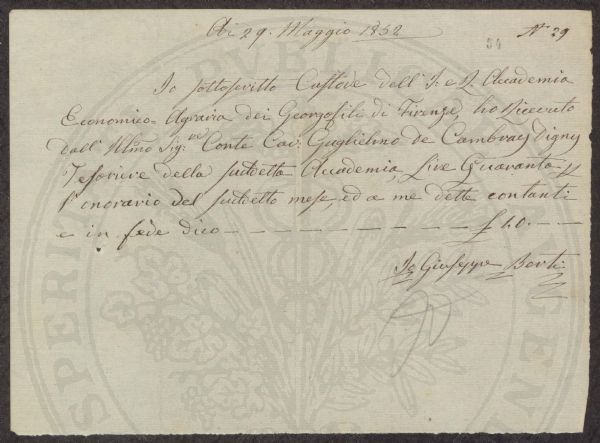 Ai 29. Maggio 1852
54
N° 29
Io sottoscritto Custode dell' I. e R. Accademia
Economico-Agraria dei Georgofili di Firenze, ho ricevuto
dall' Illmo Sigre Conte Cav. Guglielmo de Cambray Digny
Tesoriere della suddetta Accademia, Lire Quaranta
l'onorario del suddetto mese, ed a me dette contanti
e in fede dico £ 40.
Io Giuseppe Berti